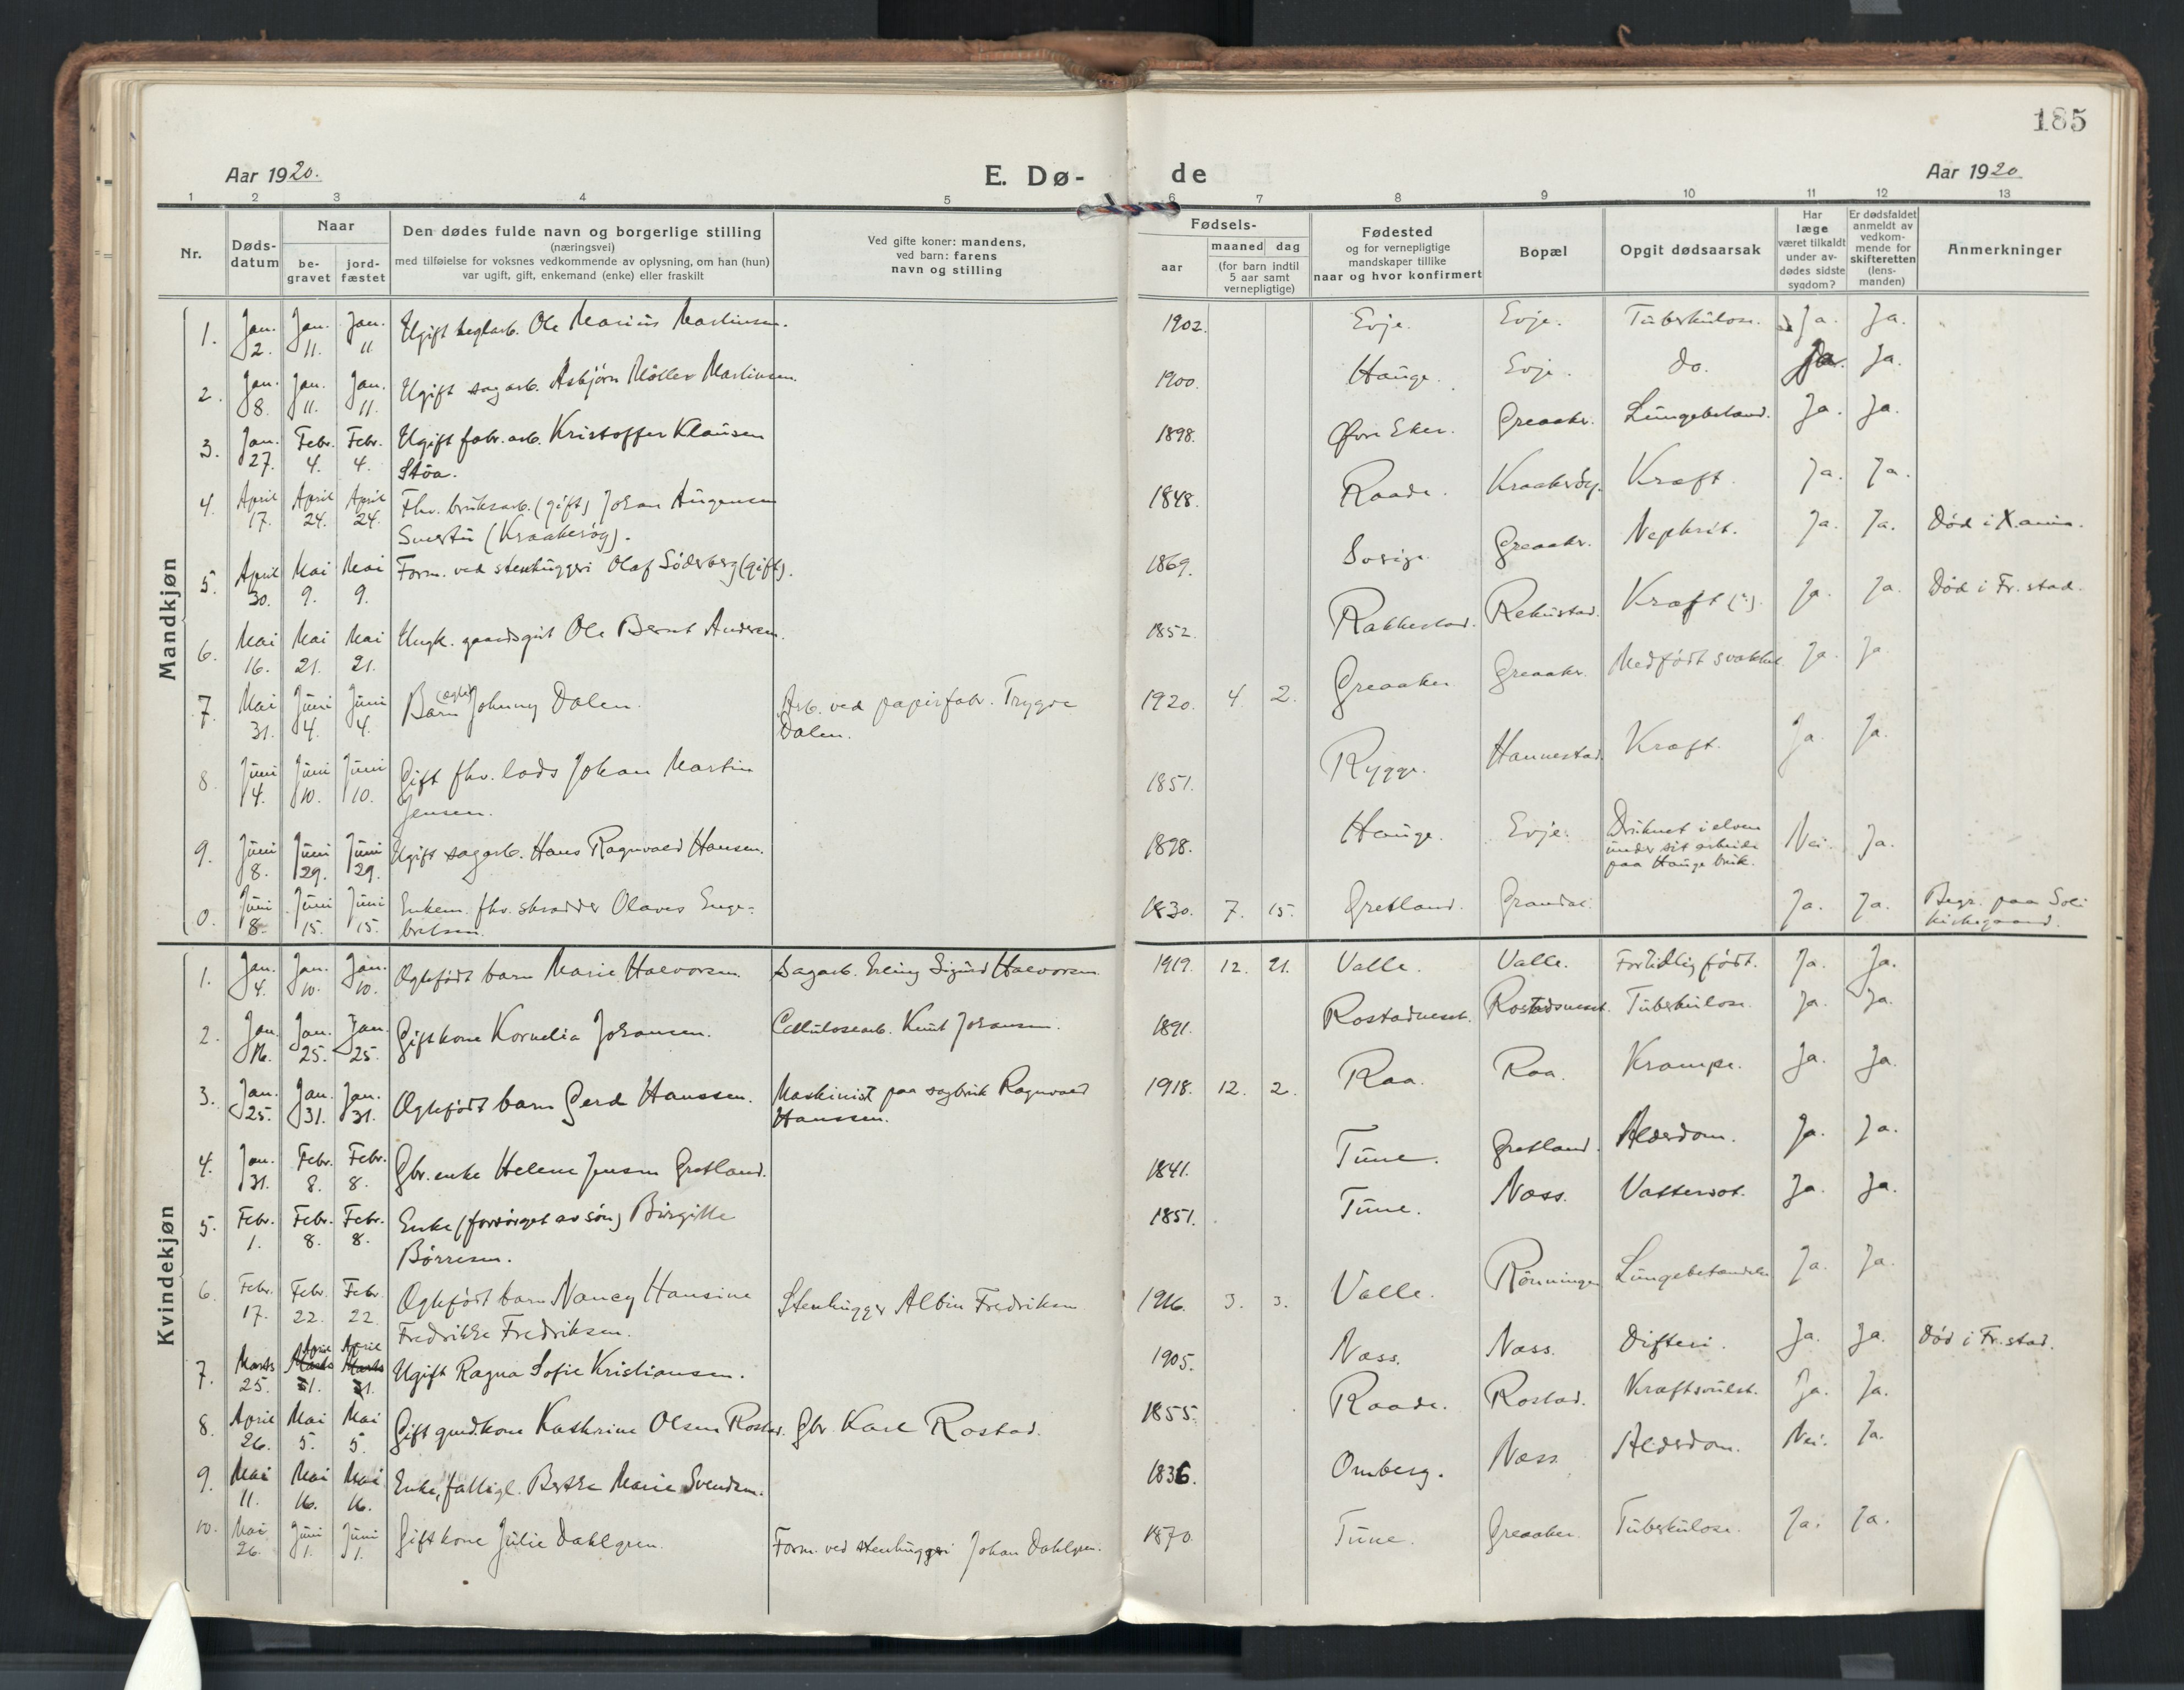 185
Aar 1920.
E. Dø-
de
Aar 1920
1 2 3 4 5 6 7 8 9 10 11 12 13
Nr.
Døds-
datum
Naar
be-
gravet
jord-
fæstet
Den dødes fulde navn og borgerlige stilling
(næringsvei)
med tilføielse for voksnes vedkommende av oplysning, om han (hun)
var ugift, gift, enkemand (enke) eller fraskilt
Ved gifte koner: mandens,
ved barn: farens
navn og stilling
Fødsels-
aar
maaned dag
(for barn indtil
5 aar samt
vernepligtige)
Fødested
og for vernepligtige
mandskaper tillike
naar og hvor konfirmert
Bopæl
Opgit dødsaarsak
Har
læge
været tilkaldt
under av-
dødes sidste
sygdom?
Er dødsfaldet
anmeldt av
vedkom-
mende for
skifteretten
(lens-
manden)
Anmerkninger
Mandkjøn
1. Jan. 2. Jan. 11. Jan. 11 Ugift teglarb. Ole Marius Martinsen. 1902. Evje. Evje. Tuberkulose. Ja. Ja.
2. Jan. 8. Jan. 11. Jan. 11. Ugift sagarb. Asbjørn Møller Martinsen. 1900. Hauge. Evje. do. Ja. Ja.
3. Jan. 27. Febr. 4. Febr. 4. Ugift fabr. arb. Kristoffer Klausen 1898. Øvre Eker. Greaaker. Lungebetænd. Ja. Ja.
Støa.
4. April 17. April 24. April 24. Fhv. bruksarb. (gift) Johan Jørgensen 1848. Raade. Kraakerøy. Kræft. Ja. Ja.
(Kraakerøy).
5. April 30. Mai 9. Mai 9. Form. ved stenhuggeri Olaf Søderberg (gift). 1869. Sverige. Greaaker. Nephrit. Ja. Ja. Død i X.ania.
6. Mai 16. Mai 21. Mai 21. Ungk. gaardsgut Ole Bernt Andersen. 1852. Rakkestad. Rekustad. Kræft (?). Ja. Ja. Død i Fr.stad.
7. Mai 31. Juni 4. Juni 4. Barn (ægtef.) Johnny Dalen. Arb. ved papirfabr. Trygve 1920. 4. 2. Greaaker Greaaker. Medfødt svakhet Ja. Ja.
Dalen.
8. Juni 4. Juni 10. Juni 10. Gift fhv. lods Johan Martin 1851. Rygge. Hannestad. Kræft. Ja. Ja.
Jensen.
9. Juni 8. Juni 29. Juni 29. Ugift sagarb. Hans Ragnvald Hansen. 1898. Hauge. Evje. Druknet i elven Nei. Ja.
under sit arbeide
paa Hauge bruk.
0. Juni 8. Juni 15. Juni 15. Enkem. fhv. skrædder Olaves Enge- 1830. 7. 15. Gretland. Grændal. Ja. Ja. Begr. paa Soli
bretsen. kirkegaard.
Kvindekjøn
1. Jan. 4. Jan. 10. Jan. 10. Ægtefødt barn Marie Halvorsen. Sagarb. Erling Sigurd Halvorsen 1919. 12. 21. Valle. Valle. Fortidlig født. Ja. Ja.
2. Jan. 16. Jan. 25. Jan. 25. Gift kone Kornelia Johansen. Cellulosearb. Knut Johansen. 1891. Rostadneset. Rostadneset. Tuberkulose. Ja. Ja.
3. Jan. 25. Jan. 31. Jan. 31. Ægtefødt barn Gerd Hanssen. Maskinist paa sagbruk Ragnvald 1918. 12. 2. Raa. Raa. Krampe. Ja. Ja.
Hanssen.
4. Jan. 31. Febr. 8. Febr. 8. Gbr. enke Helene Jensen Gretland. 1841. Tune. Gretland. Alderdom. Ja. Ja.
5. Febr. 1. Febr. 8. Febr. 8. Enke (forsørget av søn) Birgitte 1851. Tune. Næss. Vattersot. Ja. Ja.
Børresen.
6. Febr. 17. Febr. 22. Febr. 22. Ægtefødt barn Nancy Hansine Stenhugger Albin Fredriksen 1916. 3. 3. Valle. Rønningen Lungebetændelse Ja. Ja.
Fredrikke Fredriksen.
7. Marts 25. April Marts 1. April Marts 1. Ugift Ragna Sofie Kristiansen. 1905. Næss. Næss. Difteri. Ja. Ja. Død i Fr.stad.
8. April 26. Mai 5. Mai 5. Gift gmd.kone Kathrine Olsen Rostad. Gbr. Karl Rostad. 1855. Raade. Rostad. Kræftsvulst. Ja. Ja.
9. Mai 11. Mai 16. Mai 16. Enke, fattigl. Berthe Marie Svendsen. 1836. Omberg. Næss. Alderdom. Nei. Ja.
10. Mai 26. Juni 1. Juni 1. Gift kone Julie Dahlgren. Form. ved stenhuggeri Johan Dahlgren. 1870. Tune. Greaaker. Tuberkulose. Ja. Ja.